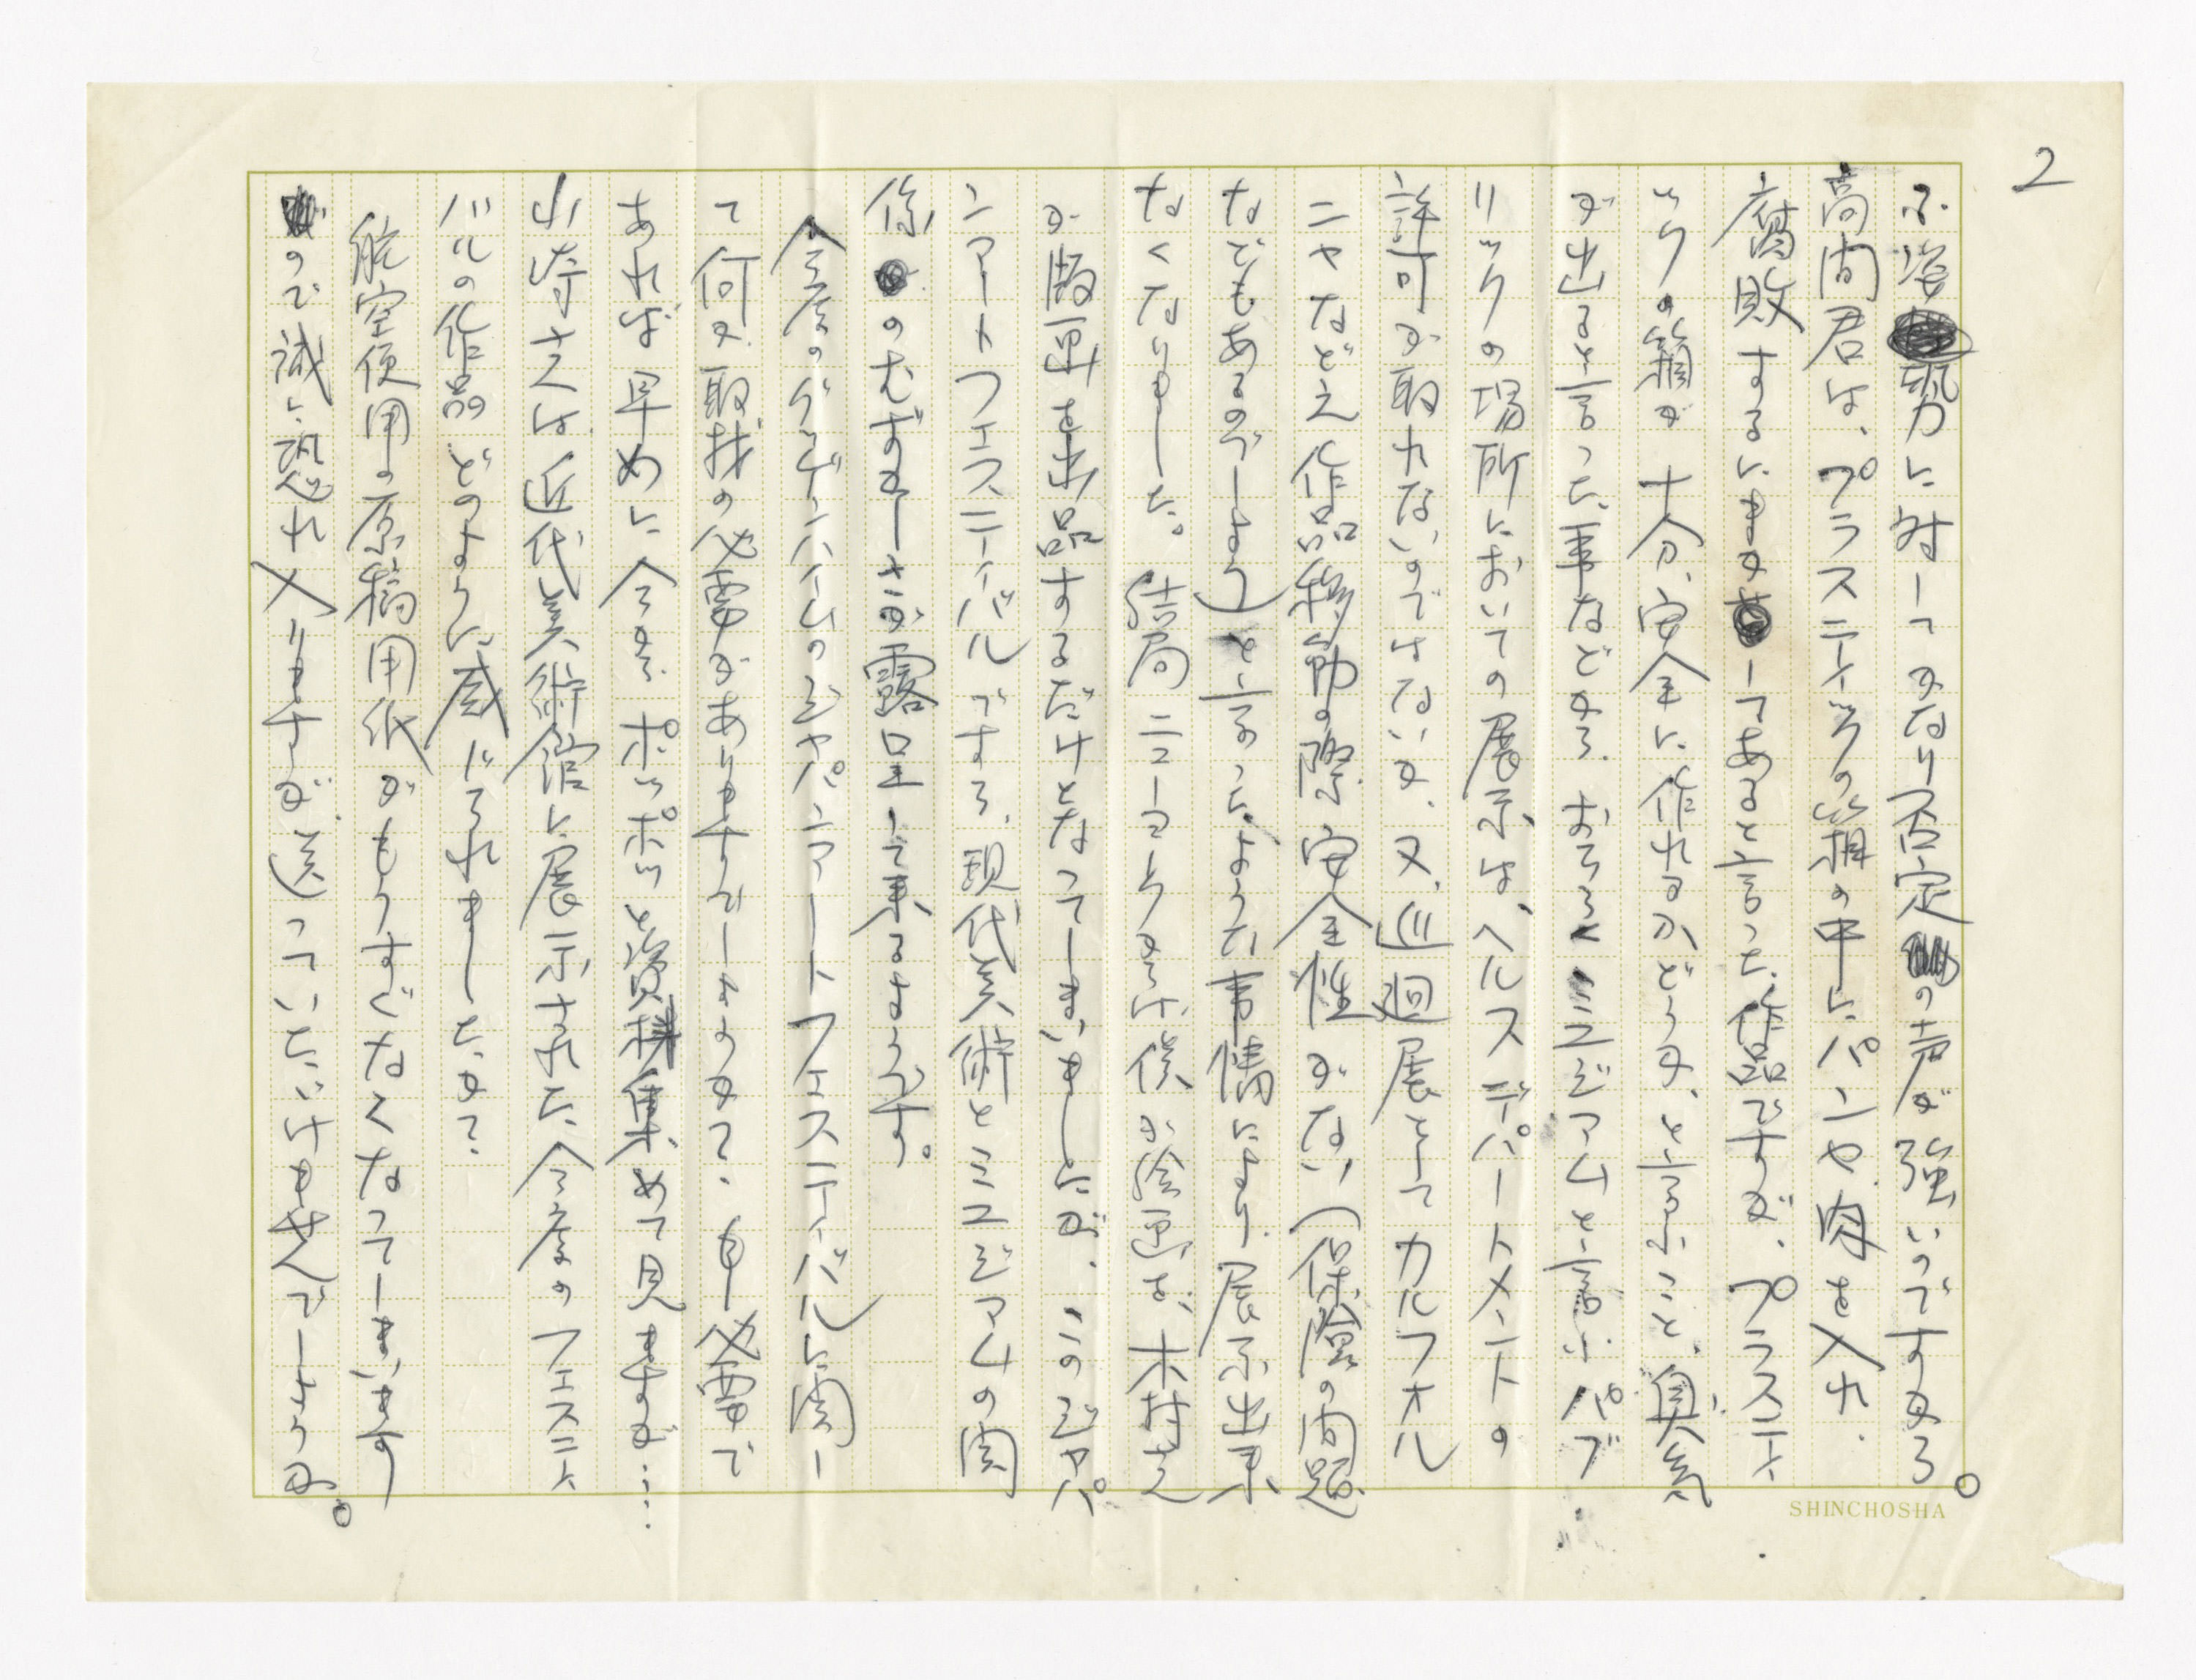 2
ふ姿勢に対してかなり否定の声が強いのですから。
高間君は、プラスティックの箱の中にパンや肉を入れ、
腐敗するにまかしてあると言った作品ですが、プラスティ
ックの箱が十分、安全に作れるかどうか、と言ふこと、臭気
が出ると言った事などから、おそらくミュジアムと言ふパブ
リックの場所においての展示は、ヘルスデパートメントの
許可が取れないのではないか、又、巡廻展としてカルフォル
ニヤなどえ作品移動の際、安全性がない(保険の問題
などもあるのでしょう)と言ったような事情により、展示出来
なくなりました。結局ニューヨークからは、僕が絵画を、木村さん
が版画を出品するだけとなってしまいましたが、このジャパ
ンアートフェスティバルですら、現代美術とミュジアムの関
係のむずかしさが露呈して来るようです。
今度のグッゲンハイムのジャパンアートフェスティバルに関し
て何か取材の必要がありますでしょうか?もし必要で
あれば早めに今からポツポツと資料集めて見ますが……
小崎さんは近代美術館に展示された今度のフェスティ
バルの作品どのように感じられましたか?
航空便用の原稿用紙がもうすぐなくなってしまいます
ので誠に恐れ入りますが送っていただけませんでしょうか。
SHINCHOSHA